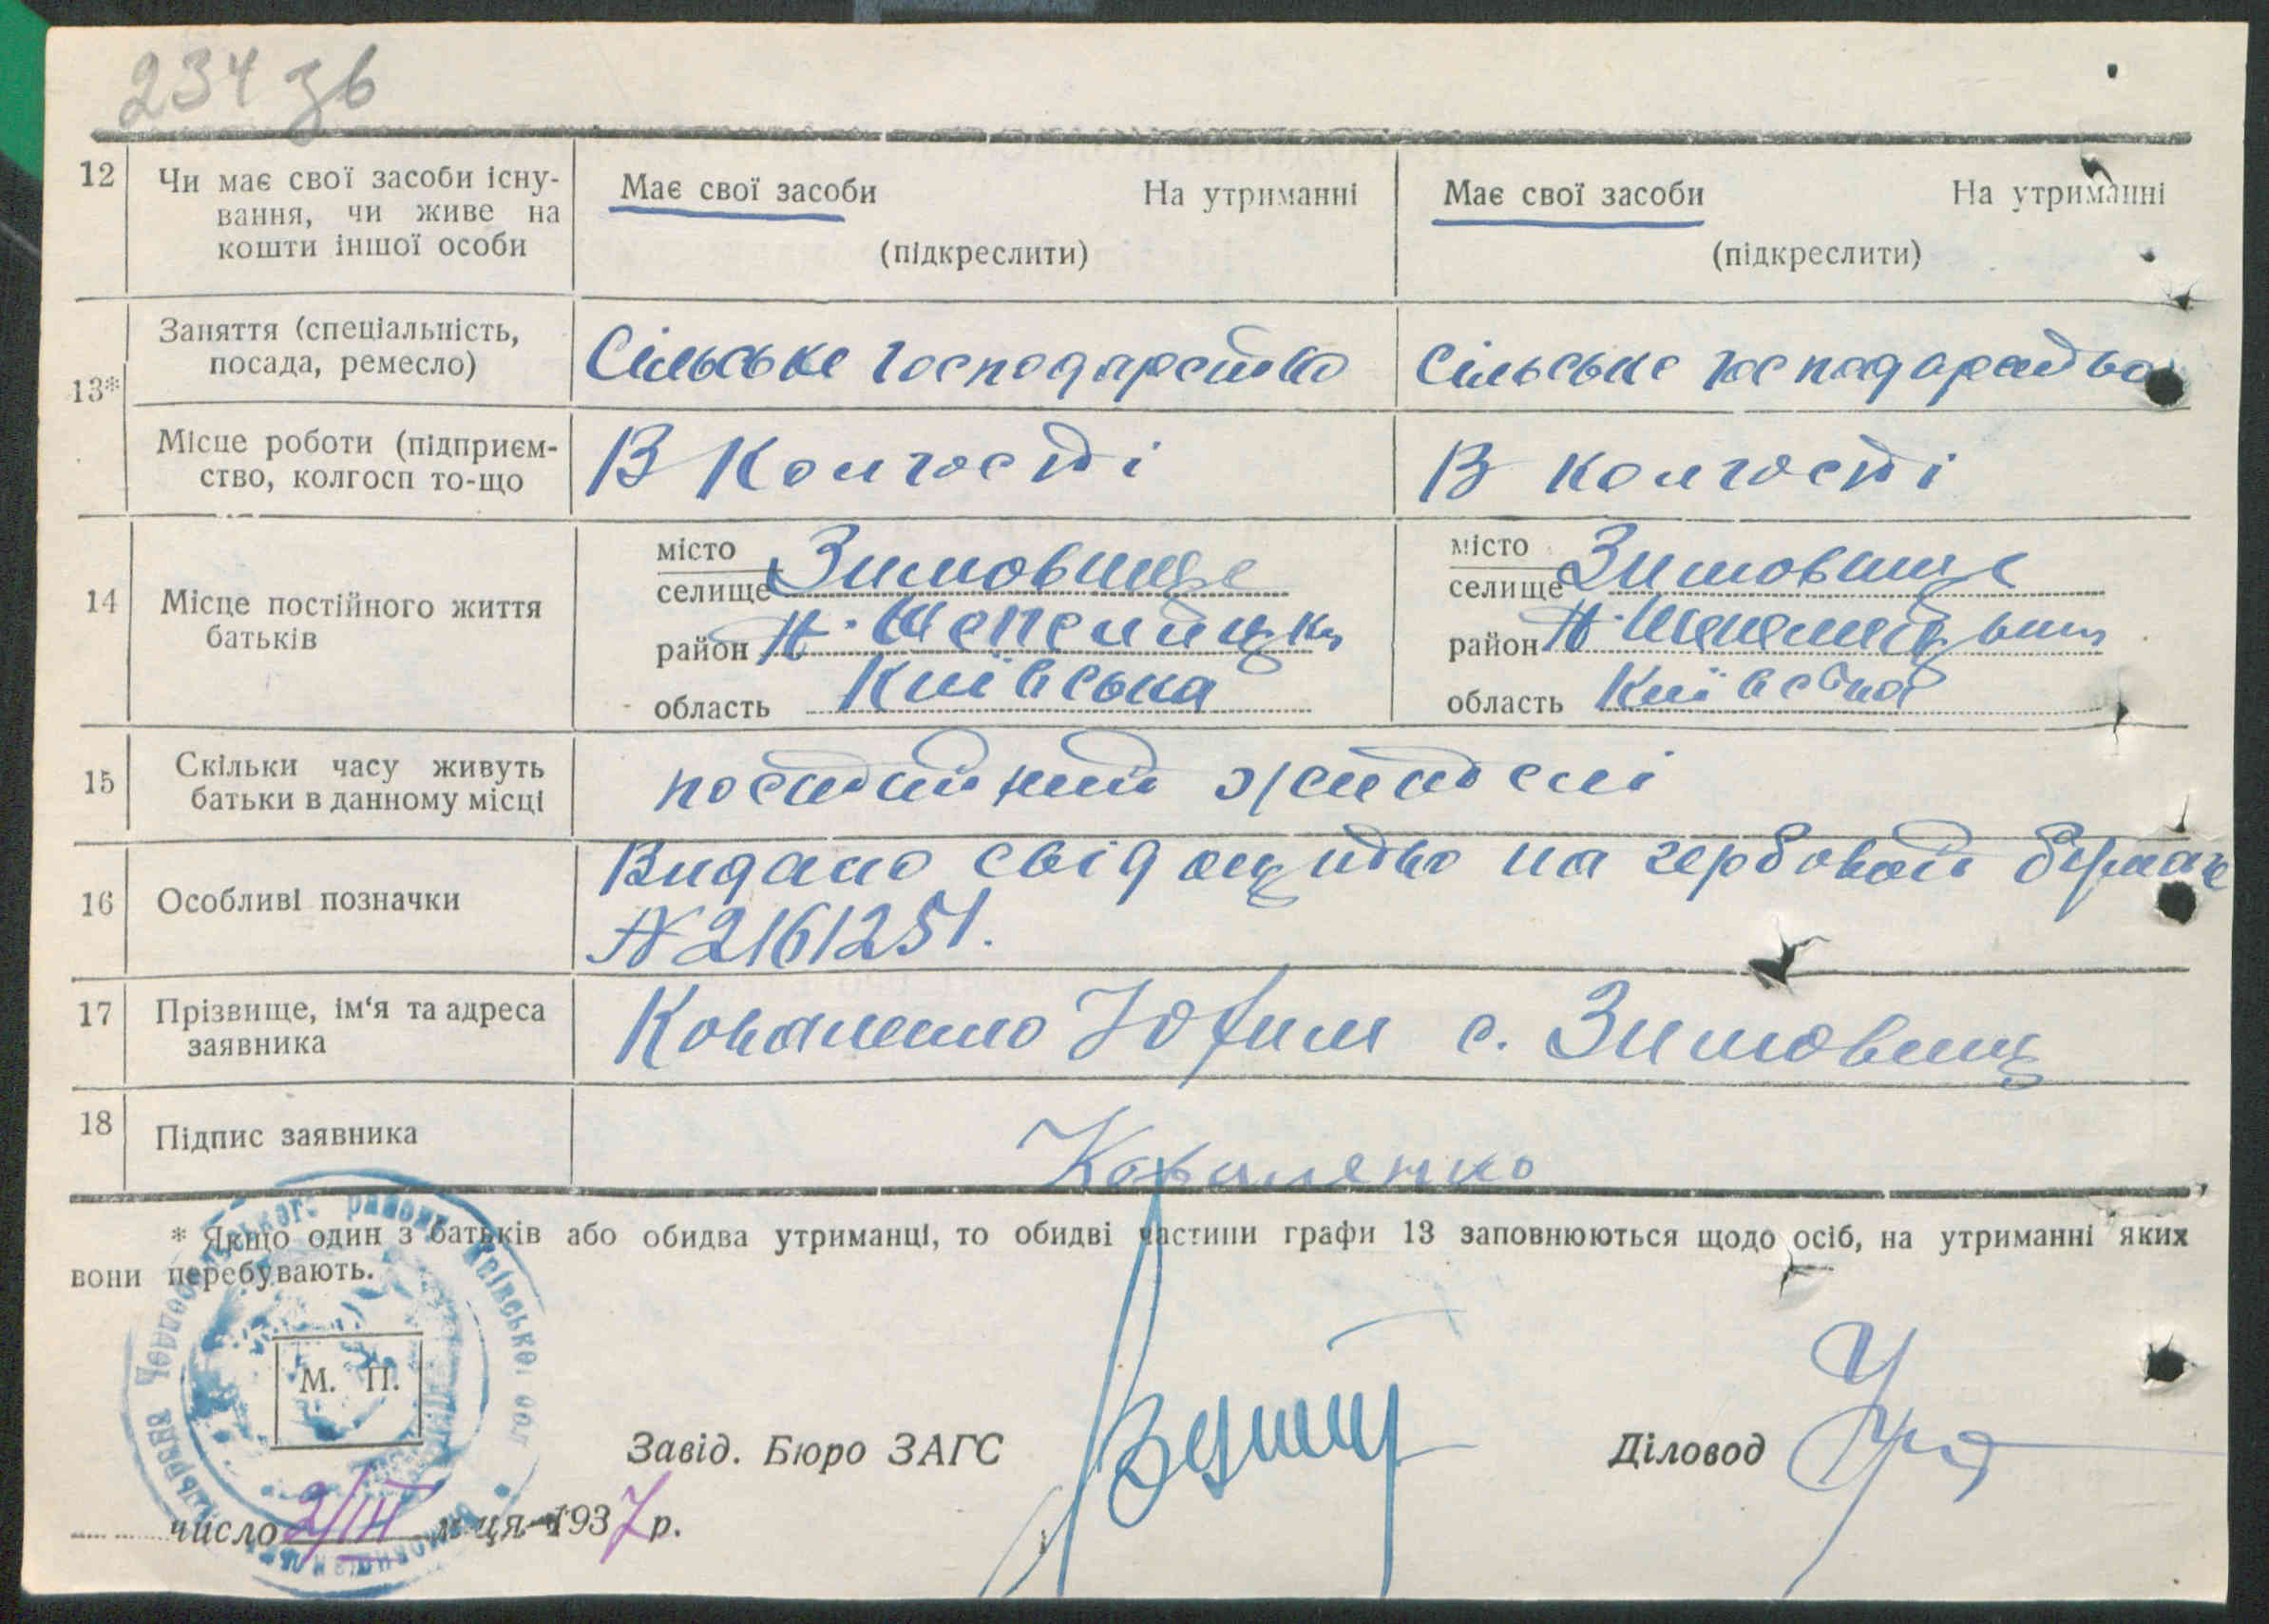 234 зв
12 Чи має свої засоби існу-
вання, чи живе на
кошти іншої особи
Має свої засоби На утриманні
(підкреслити)
Має свої засоби На утриманні
(підкреслити)
13*
Заняття (спеціальність,
посада, ремесло)
Сільське господарство
Сільське господарство
Місце роботи (підприєм-
ство, колгосп то-що
В Колгоспі
В колгоспі
14 Місце постійного життя
батьків
місто
селище Зимовище
район Н. Шепелицьк
область Київська
місто
селище Зимовище
район Н. Шепелицьк
область Київська
15 Скільки часу живуть
батьки в данному місці
постійний жителі
16 Особливі позначки
Видано свідоцтво на гербовой бумаге
№ 2161251.
17 Прізвище, ім‘я та адреса
заявника
Коваленко Юфим с. Зимовищ
18 Підпис заявника
Коваленко
* Якщо один з батьків або обидва утриманці, то обидві частини графи 13 заповнюються щодо осіб, на утриманні яких
вони перебувають.
М. П.
Завід. Бюро ЗАГС
Діловод
число 2/III м-ця 1937 р.